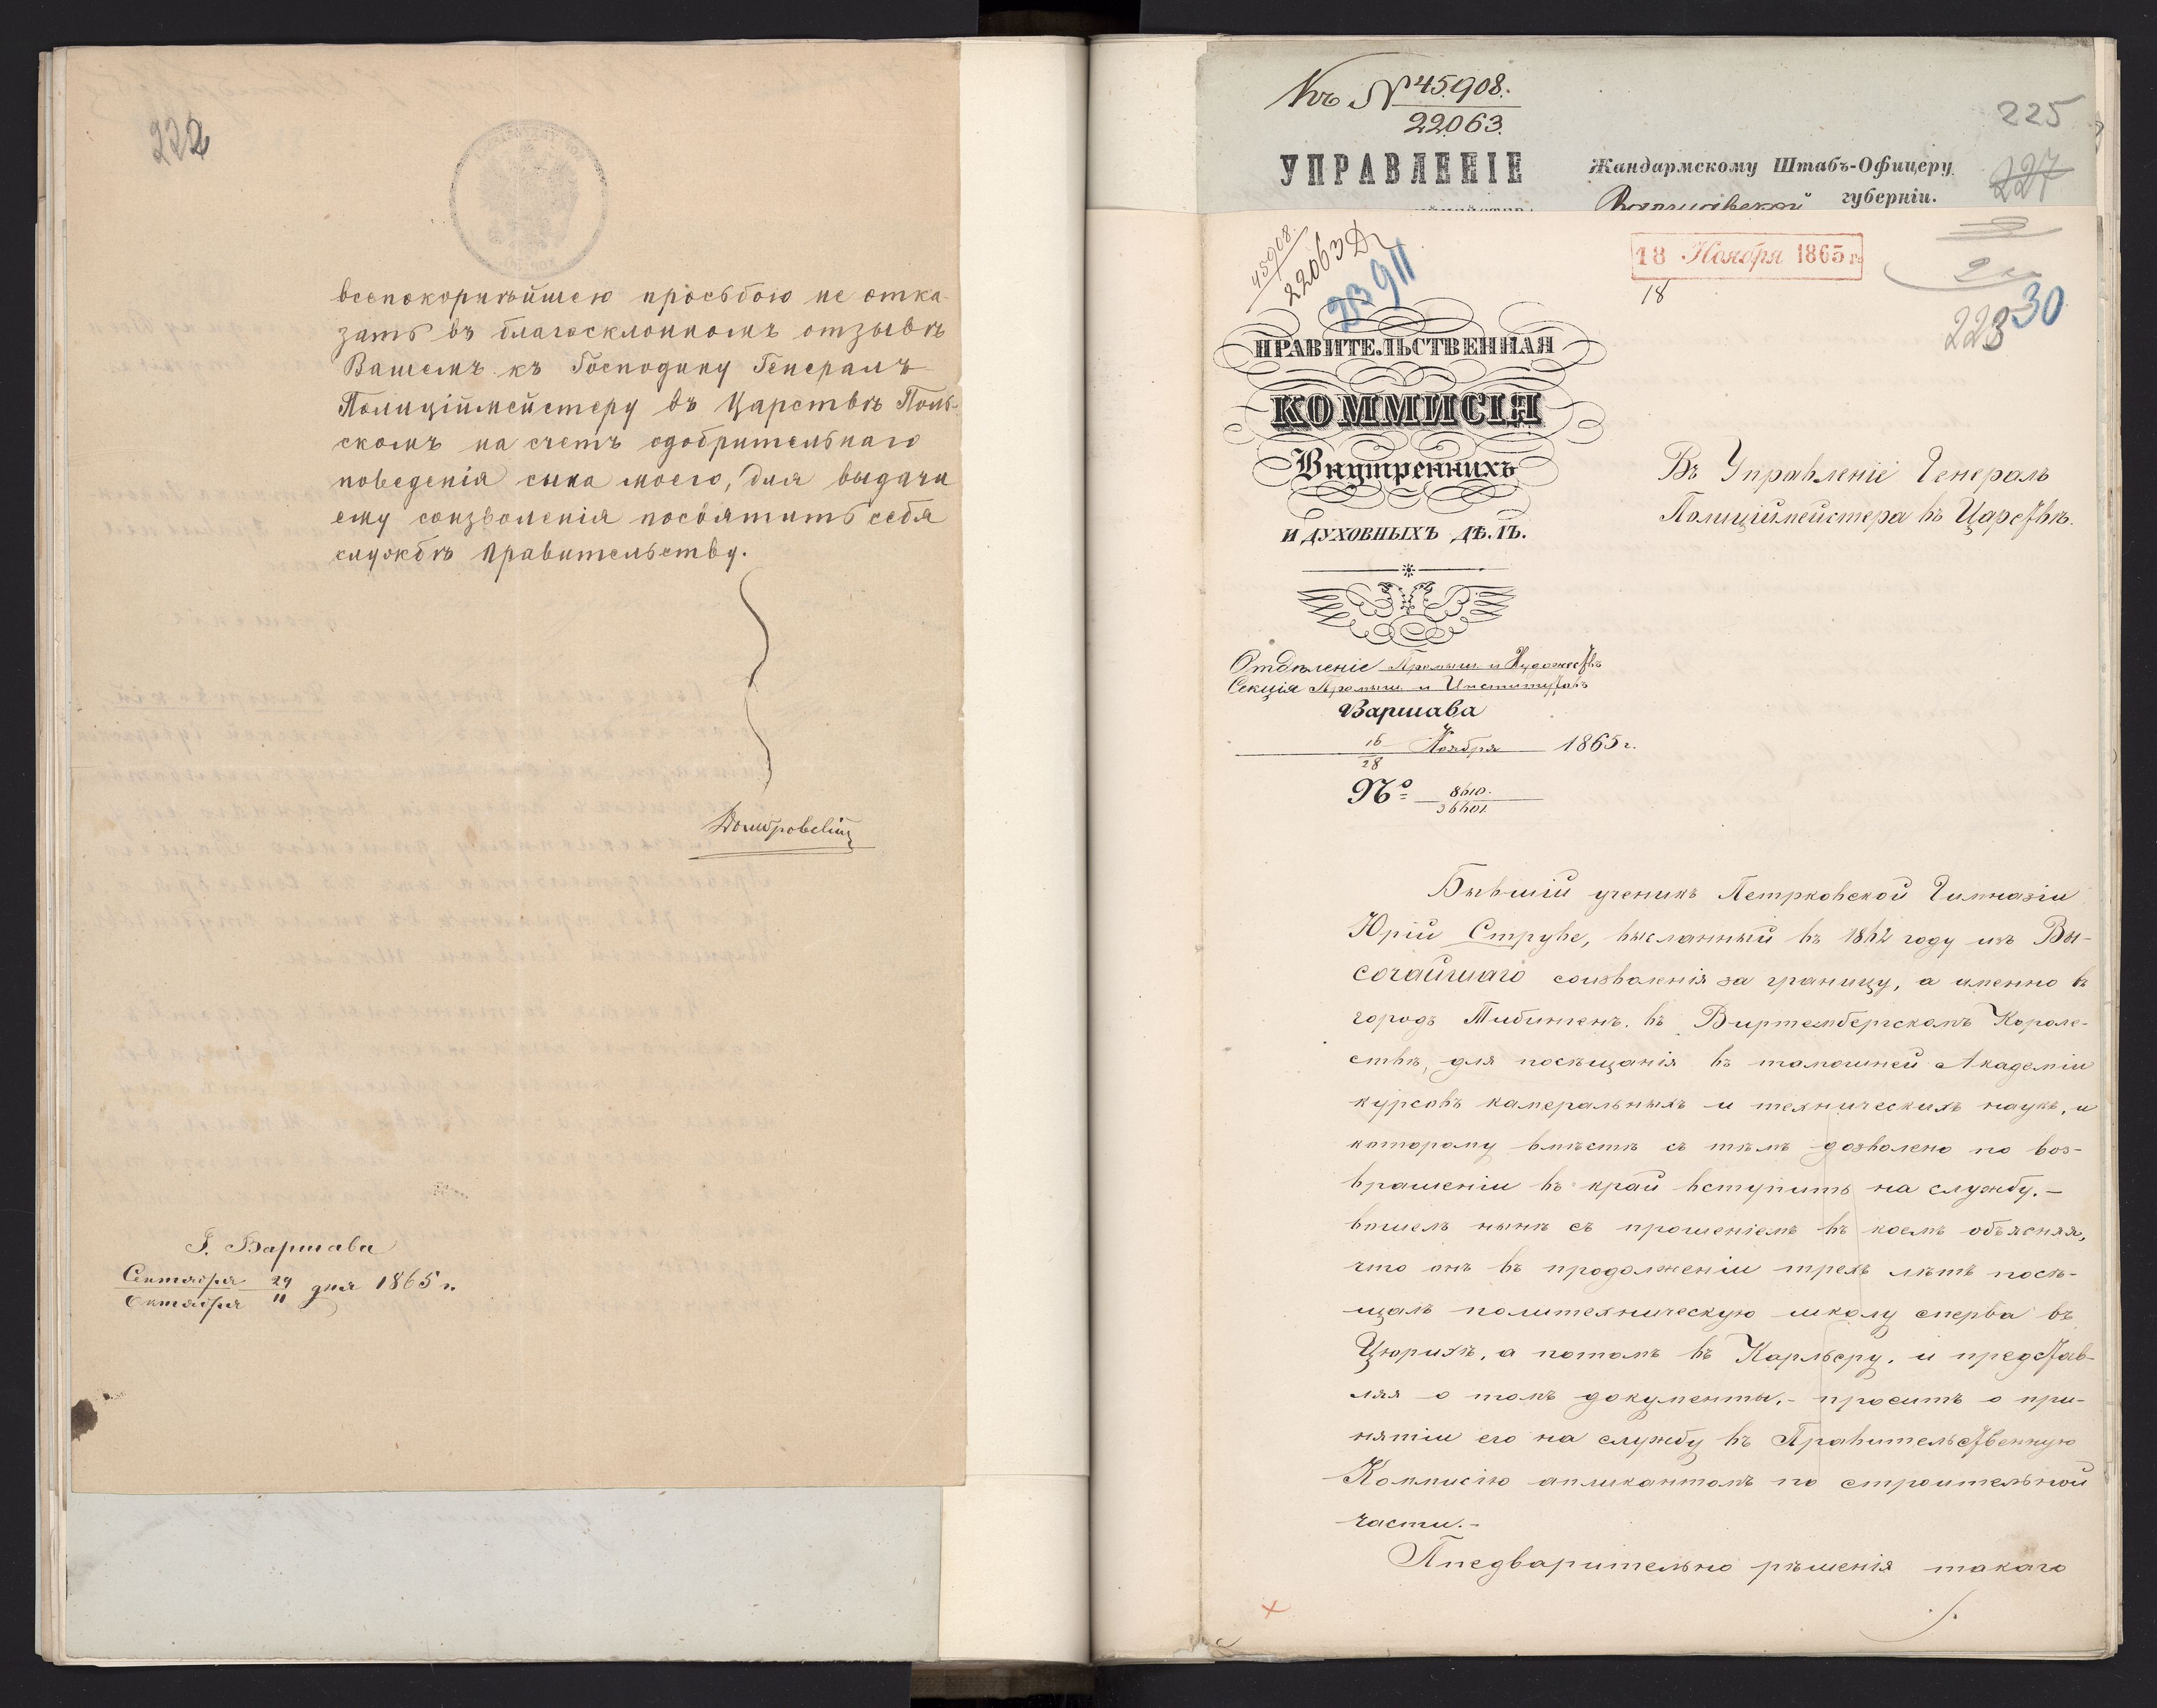 222
всепокорнѣйшею просьбою не отка-
зать въ благосклонномъ отзывѣ
Вашемъ къ Господину Генералъ
Полиціймейстеру въ Царствѣ Поль-
скомъ на счетъ одобрительнаго
поведенія сына моего, для выдачи
ему соизволенія посвятить себя
службѣ Правительству.
Домбровскій
Г. Варшава
Сентября 29 дня 1865 г.
Октября 11
Къ № 45908.
22063.
УПРАВЛЕНІЕ
Жандармскому Штабъ-Офицеру
Варшавской губерніи.
225
227
45908.
22063
2391
18 Ноября 1865 г.
18
30
223
ПРАВИТЕЛЬСТВЕННАЯ
КОММИСІЯ
Внутреннихъ
И ДУХОВНЫХЪ ДѢЛЪ.
Отдѣленіе Промыш. и Художествъ
Секція Промыш. и Институтовъ
Варшава
16/28 Ноября 1865 г.
№ 8610.
36601.
Въ Управленіе Генералъ
Полиціймейстера въ Царствѣ.
Бывшій ученикъ Петрковской Гимназіи
Юрій Струве, высланный въ 1862 году изъ Вы-
сочайшаго соизволенія за границу, а именно въ
городъ Тибингенъ. въ Виртембергскомъ Королев-
ствѣ, для посѣщанія въ тамошней Академіи
курсовъ камеральныхъ и техническихъ наукъ, и
которому вмѣстѣ съ тѣмъ дозволено по воз-
вращеніи въ край вступить на службу. —
вошелъ нынѣ съ прошеніемъ въ коемъ объясняя,
что онъ въ продолженіи трехъ лѣтъ посѣ-
щалъ политехническую школу сперва въ
Цюрихѣ, а потомъ въ Карльсру, и представ-
ляя о томъ документы, - проситъ о при-
нятіи его на службу въ Правительственную
Коммисію апликантомъ по строительной
части. -
Предварительно рѣшенія такаго